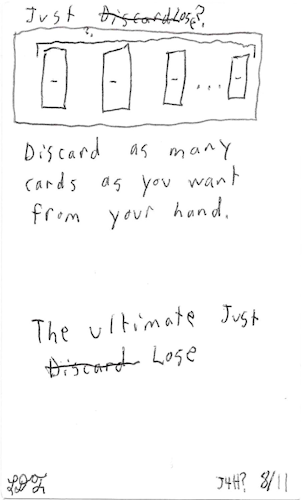 Just Discard Lose?
?
Discard as many
cards as you want
from your hand.
The ultimate Just
Discard Lose
J4H? 8/11